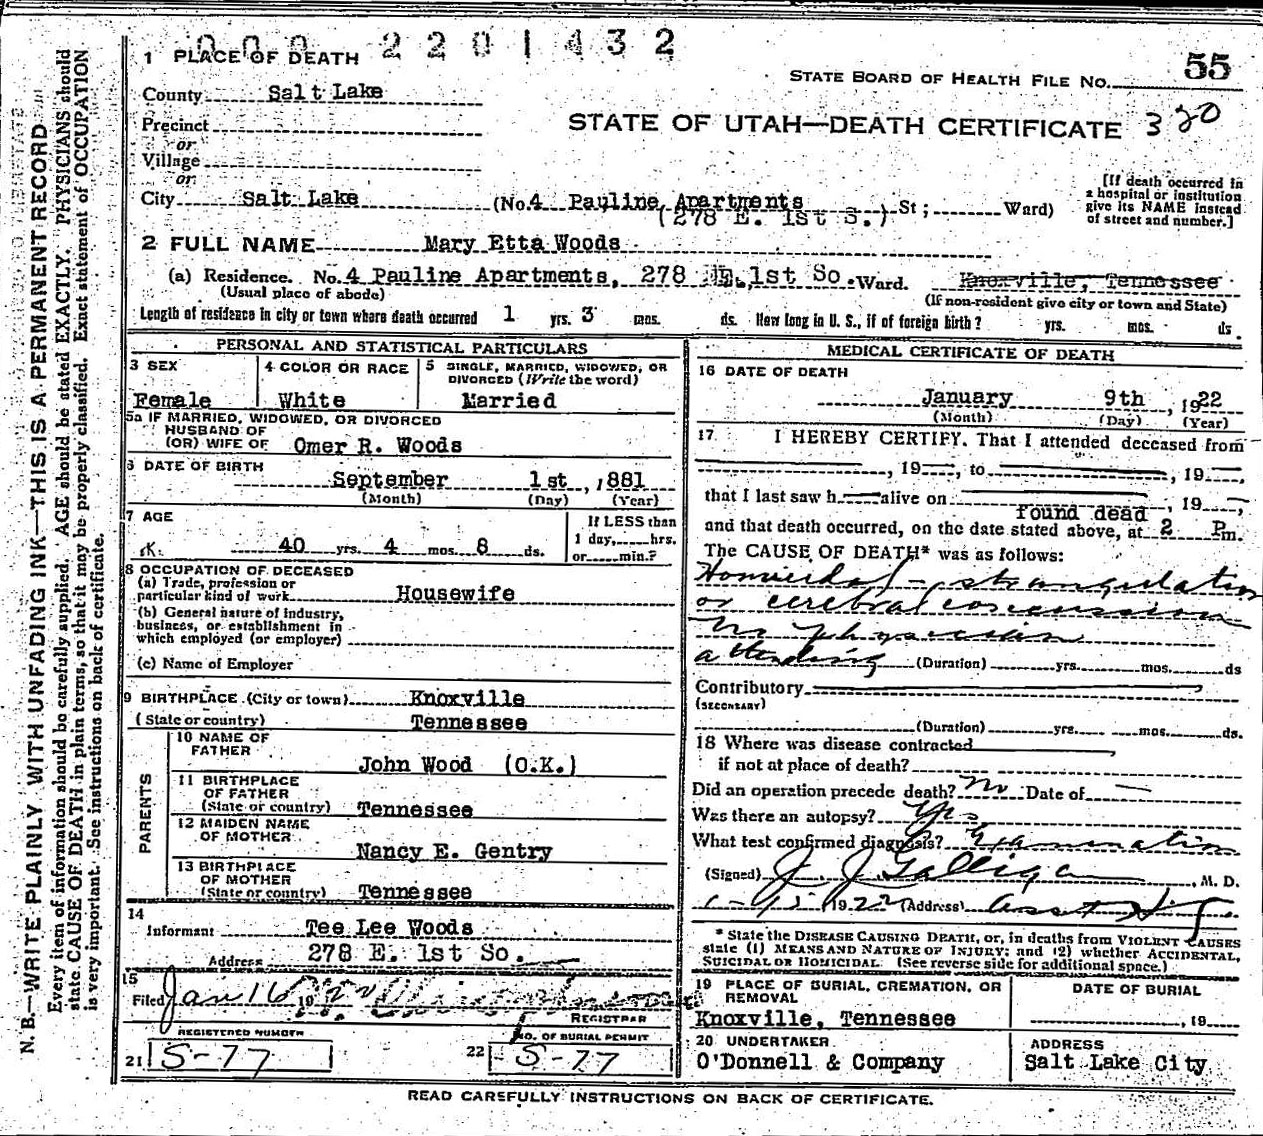 000 2201432
1 PLACE OF DEATH
STATE BOARD OF HEALTH FILE NO. 55
County Salt Lake
STATE OF UTAH—DEATH CERTIFICATE 320
Precinct
or
Village
or
City Salt Lake (No. 4 Pauline Apartments St; Ward)
(278 E. 1st S.)
[If death occurred in
a hospital or institution
give its NAME instead
of street and number.]
2 FULL NAME Mary Etta Woods
(a) Residence. No. 4 Pauline Apartments, 278 E. 1st So. Ward. Knoxville, Tennessee
(Usual place of abode) (If non-resident give city or town and State)
Length of residence in city or town where death occurred 1 yrs. 3 mos. ds. How long in U. S., if of foreign birth? yrs. mos. ds.
PERSONAL AND STATISTICAL PARTICULARS
3 SEX
Female
4 COLOR OR RACE
White
5 SINGLE, MARRIED, WIDOWED, OR
DIVORCED (Write the word)
Married
5a IF MARRIED, WIDOWED, OR DIVORCED
HUSBAND OF
(OR) WIFE OF Omer R. Woods
6 DATE OF BIRTH
September 1st, 1881
(Month) (Day) (Year)
7 AGE
40 yrs. 4 mos. 8 ds.
If LESS than
1 day, hrs.
or min.?
8 OCCUPATION OF DECEASED
(a) Trade, profession or
particular kind of work Housewife
(b) General nature of industry,
business, or establishment in
which employed (or employer)
(c) Name of Employer
9 BIRTHPLACE (City or town) Knoxville
(State or country) Tennessee
PARENTS
10 NAME OF
FATHER
John Wood (O.K.)
11 BIRTHPLACE
OF FATHER
(State or country) Tennessee
12 MAIDEN NAME
OF MOTHER
Nancy E. Gentry
13 BIRTHPLACE
OF MOTHER
(State or country) Tennessee
14
Informant Tee Lee Woods
Address 278 E. 1st So.
15
Filed Jan 16 1922
REGISTRAR
REGISTERED NUMBER
21 S-77
NO. OF BURIAL PERMIT
22 S-77
MEDICAL CERTIFICATE OF DEATH
16 DATE OF DEATH
January 9th, 1922
(Month) (Day) (Year)
17 I HEREBY CERTIFY, That I attended deceased from
, 19 , to , 19 ,
that I last saw h alive on , 19 ,
found dead
and that death occurred, on the date stated above, at 2 P.m.
The CAUSE OF DEATH* was as follows:
Homicidal - strangulation
or cerebral concussion
No physician
attending (Duration) yrs. mos. ds
Contributory
(SECONDARY)
(Duration) yrs. mos. ds.
18 Where was disease contracted
if not at place of death?
Did an operation precede death? No Date of
Was there an autopsy? Yes
What test confirmed diagnosis? Examination
(Signed) J. J. Galligan, M. D.
, 1922 (Address)
* State the DISEASE CAUSING DEATH, or, in deaths from VIOLENT CAUSES
state (1) MEANS AND NATURE OF INJURY; and (2) whether ACCIDENTAL,
SUICIDAL OR HOMICIDAL. (See reverse side for additional space.)
19 PLACE OF BURIAL, CREMATION, OR
REMOVAL
Knoxville, Tennessee
DATE OF BURIAL
, 19
20 UNDERTAKER
O'Donnell & Company
ADDRESS
Salt Lake City
READ CAREFULLY INSTRUCTIONS ON BACK OF CERTIFICATE.
N. B.—WRITE PLAINLY WITH UNFADING INK—THIS IS A PERMANENT RECORD
Every item of information should be carefully supplied. AGE should be stated EXACTLY. PHYSICIANS should
state CAUSE OF DEATH in plain terms, so that it may be properly classified. Exact statement of OCCUPATION
is very important. See instructions on back of certificate.